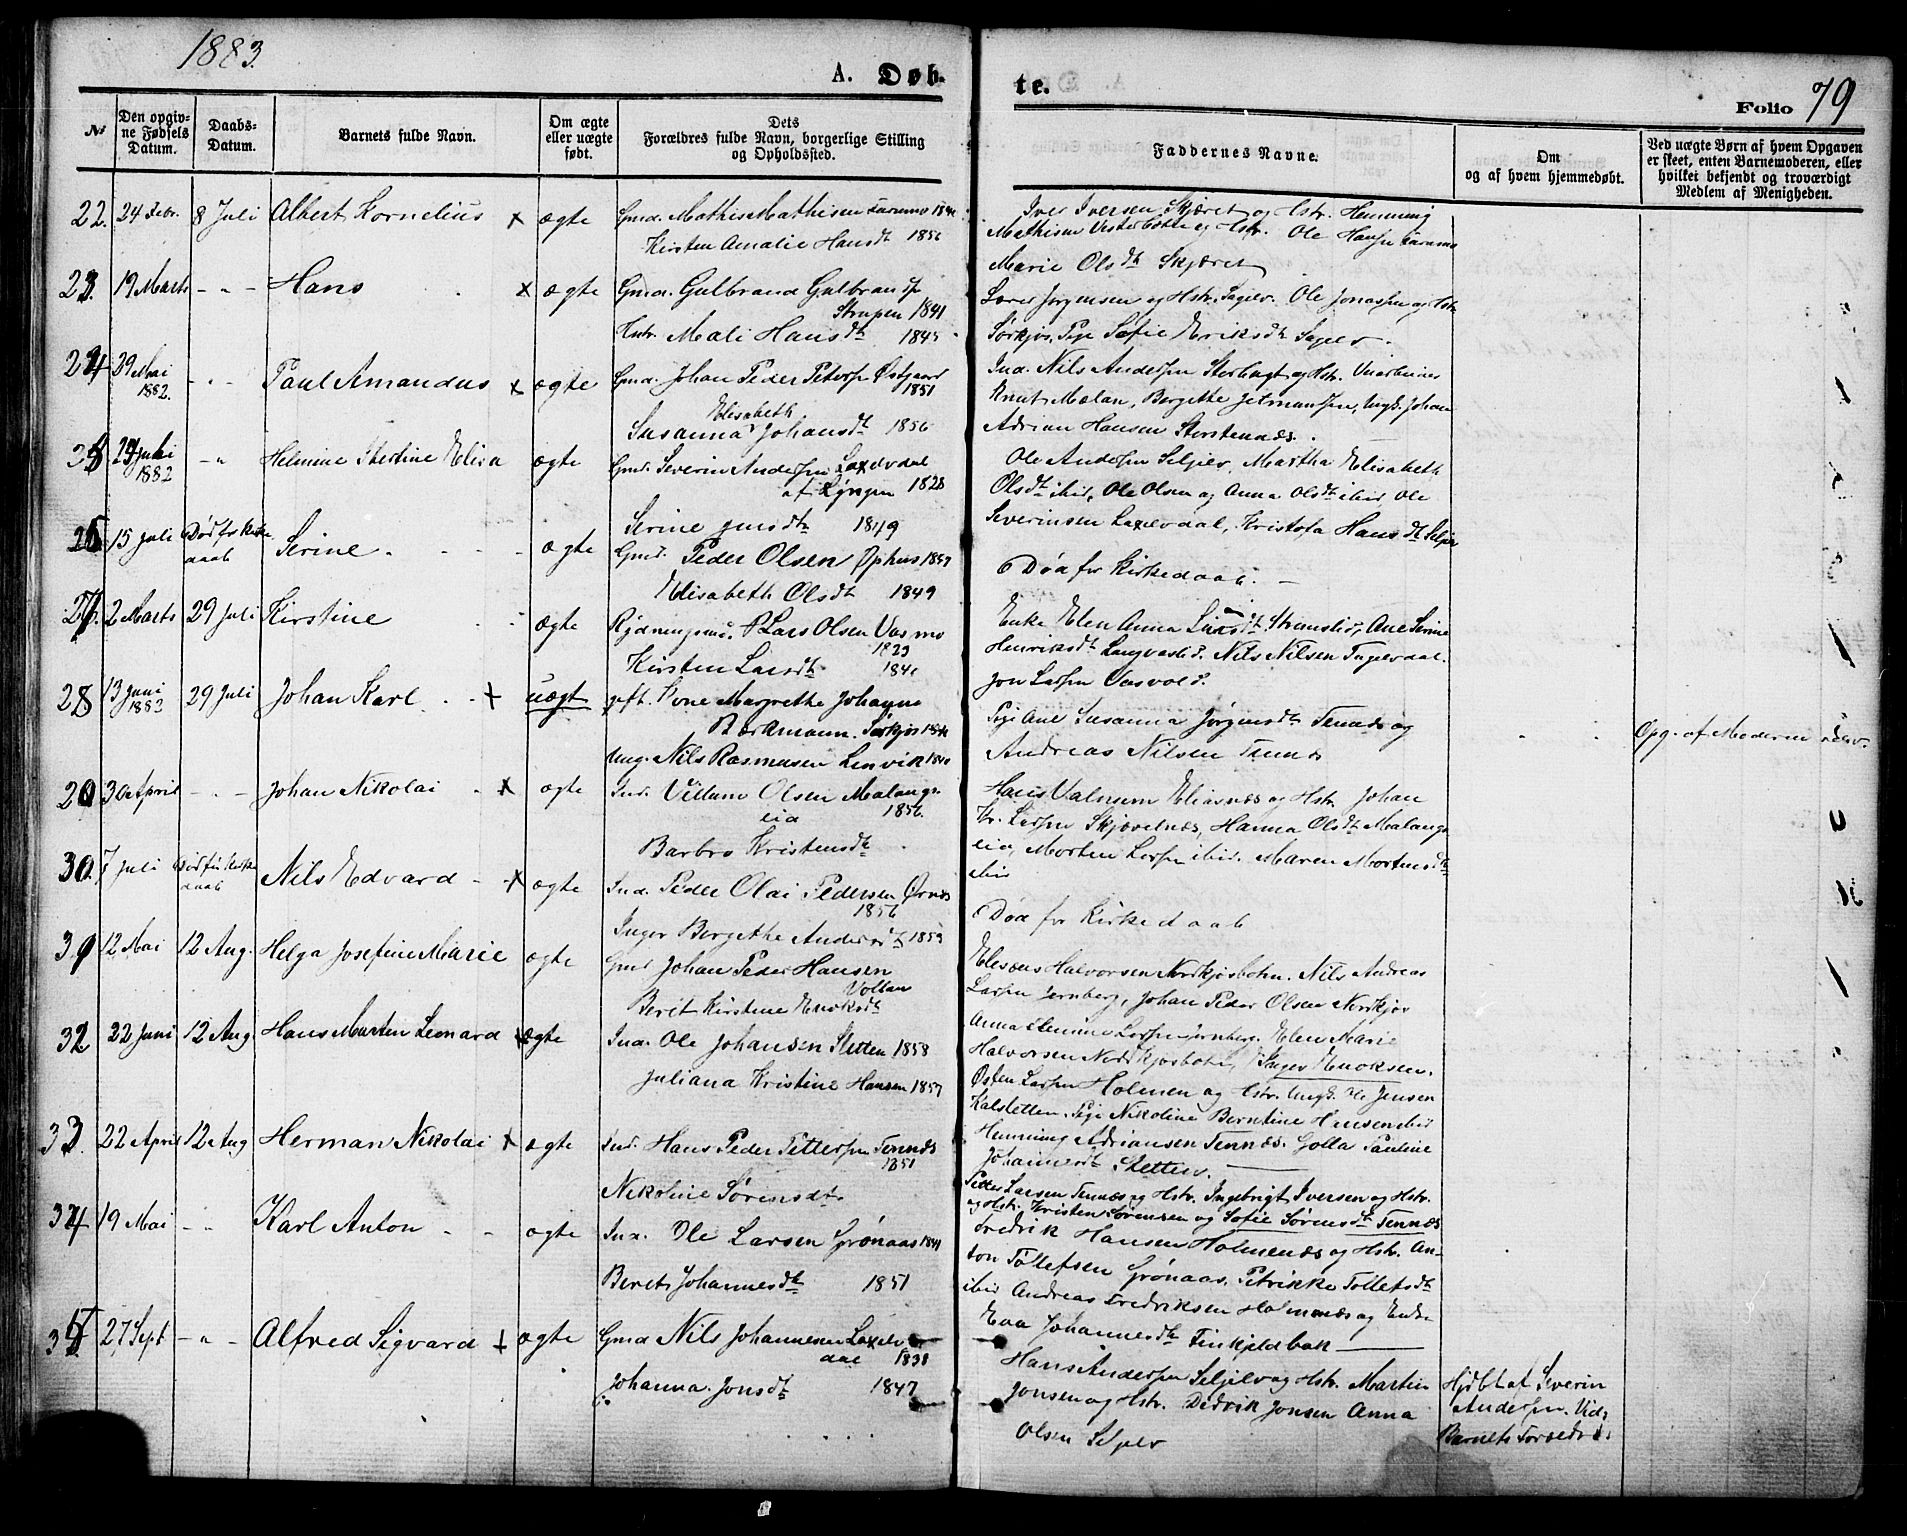 1883.
A. Døb-
te.
Folio 79
№
Den opgiv-
ne Fødsels
Datum.
Daabs-
Datum.
Barnets fulde Navn.
Om ægte
eller uægte
født.
Dets
Forældres fulde Navn, borgerlige Stilling
og Opholdssted.
Faddernes Navne.
Om
og af hvem hjemmedøbt.
Ved uægte Børn af hvem Opgaven
er skeet, enten Barnemoderen, eller
hvilket bekjendt og troværdigt
Medlem af Menigheden.
22. 24 Febr. 8 Juli Albert Kornelius x ægte Gmd. Mathis Mathisen
Kirsten Amalie Hansdt 1856
Iver Iversen Skjæret og Hstr. Henning
Mathisen og Hstr. Ole Hansen
Marie Olsdt Skjæret
23. 19 Marts - " - Hans x ægte Gmd. Gulbrand Gulbransen
Strupen 1841
Hstr. Mali Hansdt 1845
Lars Jørgensen og Hstr. Sagelv. Ole Jonassen og Hstr.
Sørkjos, Pige Sofie Eriksdt Sagelv.
24 29 Mai
1882. - " - Paul Amandus x ægte Gmd. Johan Peder Petersen Østgaard
1851
Elisabeth
Susanna Johansdt 1856
Ind. Nils Andersen og Hstr.
Knut Mælan, Bergitte Jetmundsen, Ungk. Johan
Adrian Hansen Storstennæs.
1882 - " Helmine Stertine Elisa ægte Gmd. Severin Andersen Laxelvdal
af Lyngen 1828
Serine 1849
Ole Andersen Seljelv, Martha Elisabeth
Olsdt ibid, Ole Olsen og Anna Olsdt ibid Ole
Severinsen Laxelvdal, Kristofa Hansdt Seljelv
26 15 Juli Død før Kirke
daab Serine ægte Gmd. Peder Olsen Ophus
Elisabeth Olsdt 1849
Død før Kirkedaab. —
27. 2 Marts 29 Juli Kirstine ægte Rydningsmd. Lars Olsen
1829
Kirsten Larsdt
Enke Elen Anna Ane Serine
Henriksdt Nils Nilsen Tagelvdal.
Jon Larsen
28 13 Juni
1883 29 Juli Johan Karl x uægt gift. Kone Margrethe Johanna
Bærdmann. Sørkjos
Ung. Nils Rasmusen Lenvik
Pige Ane Susanna Jørgensdt Tennæs og
Andreas Nilsen Tennæs
Opg. af Moderen
30 April - " - Johan Nikolai x ægte Ind. Villum Olsen Malangs-
eid 1856
Barbro Kristensdt
Hans Elisenæs og Hstr. Johan
Kr. Larsen Skjævelnæs, Hanna Olsdt Malangs-
eid, Morten Larsen ibid. Maren Mortensdt
ibid
30. 7 Juli Død før Kirke
daab Nils Edvard - x ægte Ind. Peder Olai Pedersen Ørnæs
1856
Inger Bergithe Andersdt 1853
Død før Kirkedaab
31 12 Mai 12 Aug. Helga Josefine Marie ægte Gmd Johan Peder Hansen
Vollan
Beret Kirstine Enoksdt
Halvorsen Nordkjosbotn. Nils Andreas
Larsen Jernberg, Johan Peder Olsen Nordkjos
Anna Larsen Jernberg. Elen Marie
Halvorsen Nordkjosbotn, Inger Enoksen.
32 22 Juni 12 Aug. Hans Martin Leonard x ægte Ind. Ole Johansen Sletten 1858
Juliana Kristine Hansen 1857
Østen Larsen Holmen og Hstr. Ungk. Ole Jensen
Kalstetten. Pige Nikoline Berntine Hansen ibid
Henning Adriansen Tennæs. Golla Pauline
Johannesdt Sletten.
33. 22 April 12 Aug Herman Nikolai x ægte Ind. Hans Peder Pettersen Tennæs
1851
Nikoline Sørensdt
Petter Larsen Tennæs og Hstr. Ingebrigt Iversen og Hstr.
og Hstr. Kristen Sørensen og Sofie Sørensdt Tennæs
34 19 Mai - " - Karl Anton - - ægte Ind. Ole Larsen Grønaas
Beret Johannesdt 1851
Fredrik Hansen Holmenæs og Hstr. An-
ton Tollefsen Grønaas. Petrikke Tollefsdt
ibid Andreas Fredriksen Holmenæs og Enke
Eva Johannesdt Finkjeldbak
35 27 Sept - " - Alfred Sigvard + ægte Gmd Nils Johannesen Laxelv-
dal 1838
Johanna Jonsdt 1847
Hans Andersen Seljelv og Hstr. Martin
Jonsen og Hstr. Didrik Jonsen Anna
Olsen Seljelv
Hjdbt af Severin
Andersen. Vid:
Barnets Forældre.